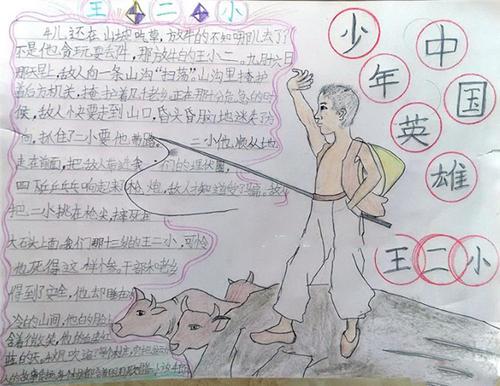 王二小
牛儿还在山坡吃草,放牛的不知哪儿去了
不是他贪玩耍丢牛,那放牛的王小二。九月十六日
那天早上,敌人向一条山沟“扫荡”山沟里掩护
着后方机关,掩护着几千老乡。正在那十分危急的时
候,敌人快要走到山口,昏头昏脑地迷失方
向,抓住了二小要他带路。二小他顺从地
走在前面,把敌人带进我们的埋伏圈,
四下乒乒乓乓响起了枪炮,敌人才知道受了骗。
把二小挑在枪尖,摔死在
大石头上面,我们那十三岁的王二小,可怜
他死得这样惨。干部和老乡
得到了安全,他却睡在
冰冷的山间,他的脸上
含着微笑,他的
蓝的天。
少年
中国
英雄
王二小